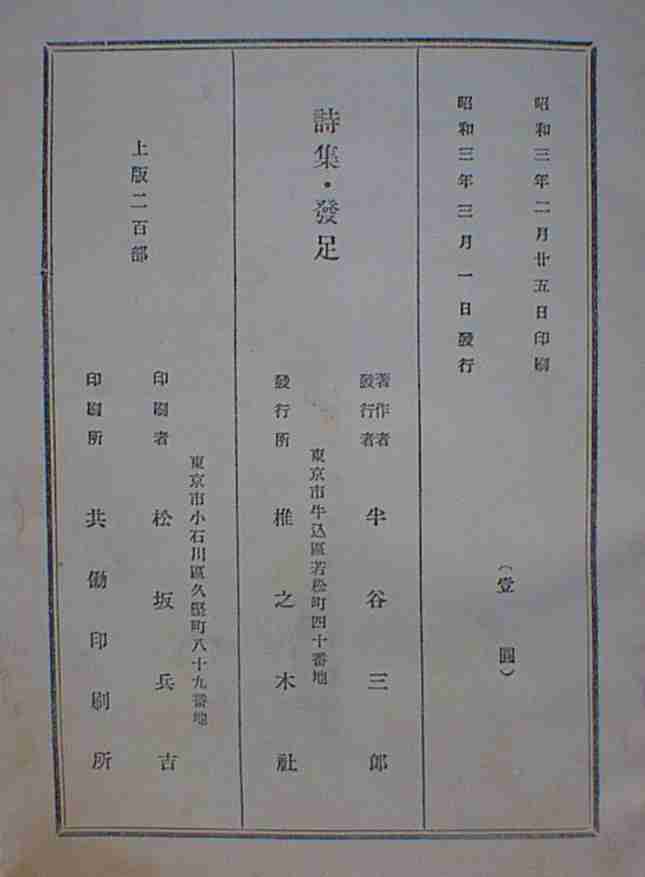 昭和三年二月廿五日印刷
昭和三年三月一日發行
(壹圓)
詩集・發足
著作者
發行者
半谷三郎
東京市牛込區若松町四十番地
發行所 椎之木社
上版二百部
東京市小石川區久堅町八十九番地
印刷者 松坂兵吉
印刷所 共働印刷所